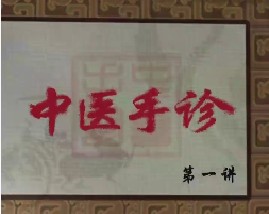 中医手诊
第一讲